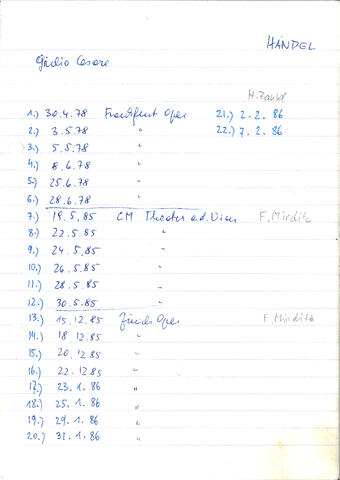 HÄNDEL
Giulio Cesare
1.) 30.4.78 Frankfurt Oper
2.) 3.5.78 "
3.) 5.5.78 "
4.) 8.6.78 "
5.) 25.6.78 "
6.) 28.6.78 "
7.) 19.5.85 CM Theater a.d. Wien F. Mirdita
8.) 22.5.85 "
9.) 24.5.85 "
10.) 26.5.85 "
11.) 28.5.85 "
12.) 30.5.85 "
13.) 15.12.85 Zürich Oper F. Mirdita
14.) 18.12.85 "
15.) 20.12.85 "
16.) 22.12.85 "
17.) 23.1.86 "
18.) 25.1.86 "
19.) 29.1.86 "
20.) 31.1.86 "
21.) 2.2.86
22.) 7.2.86